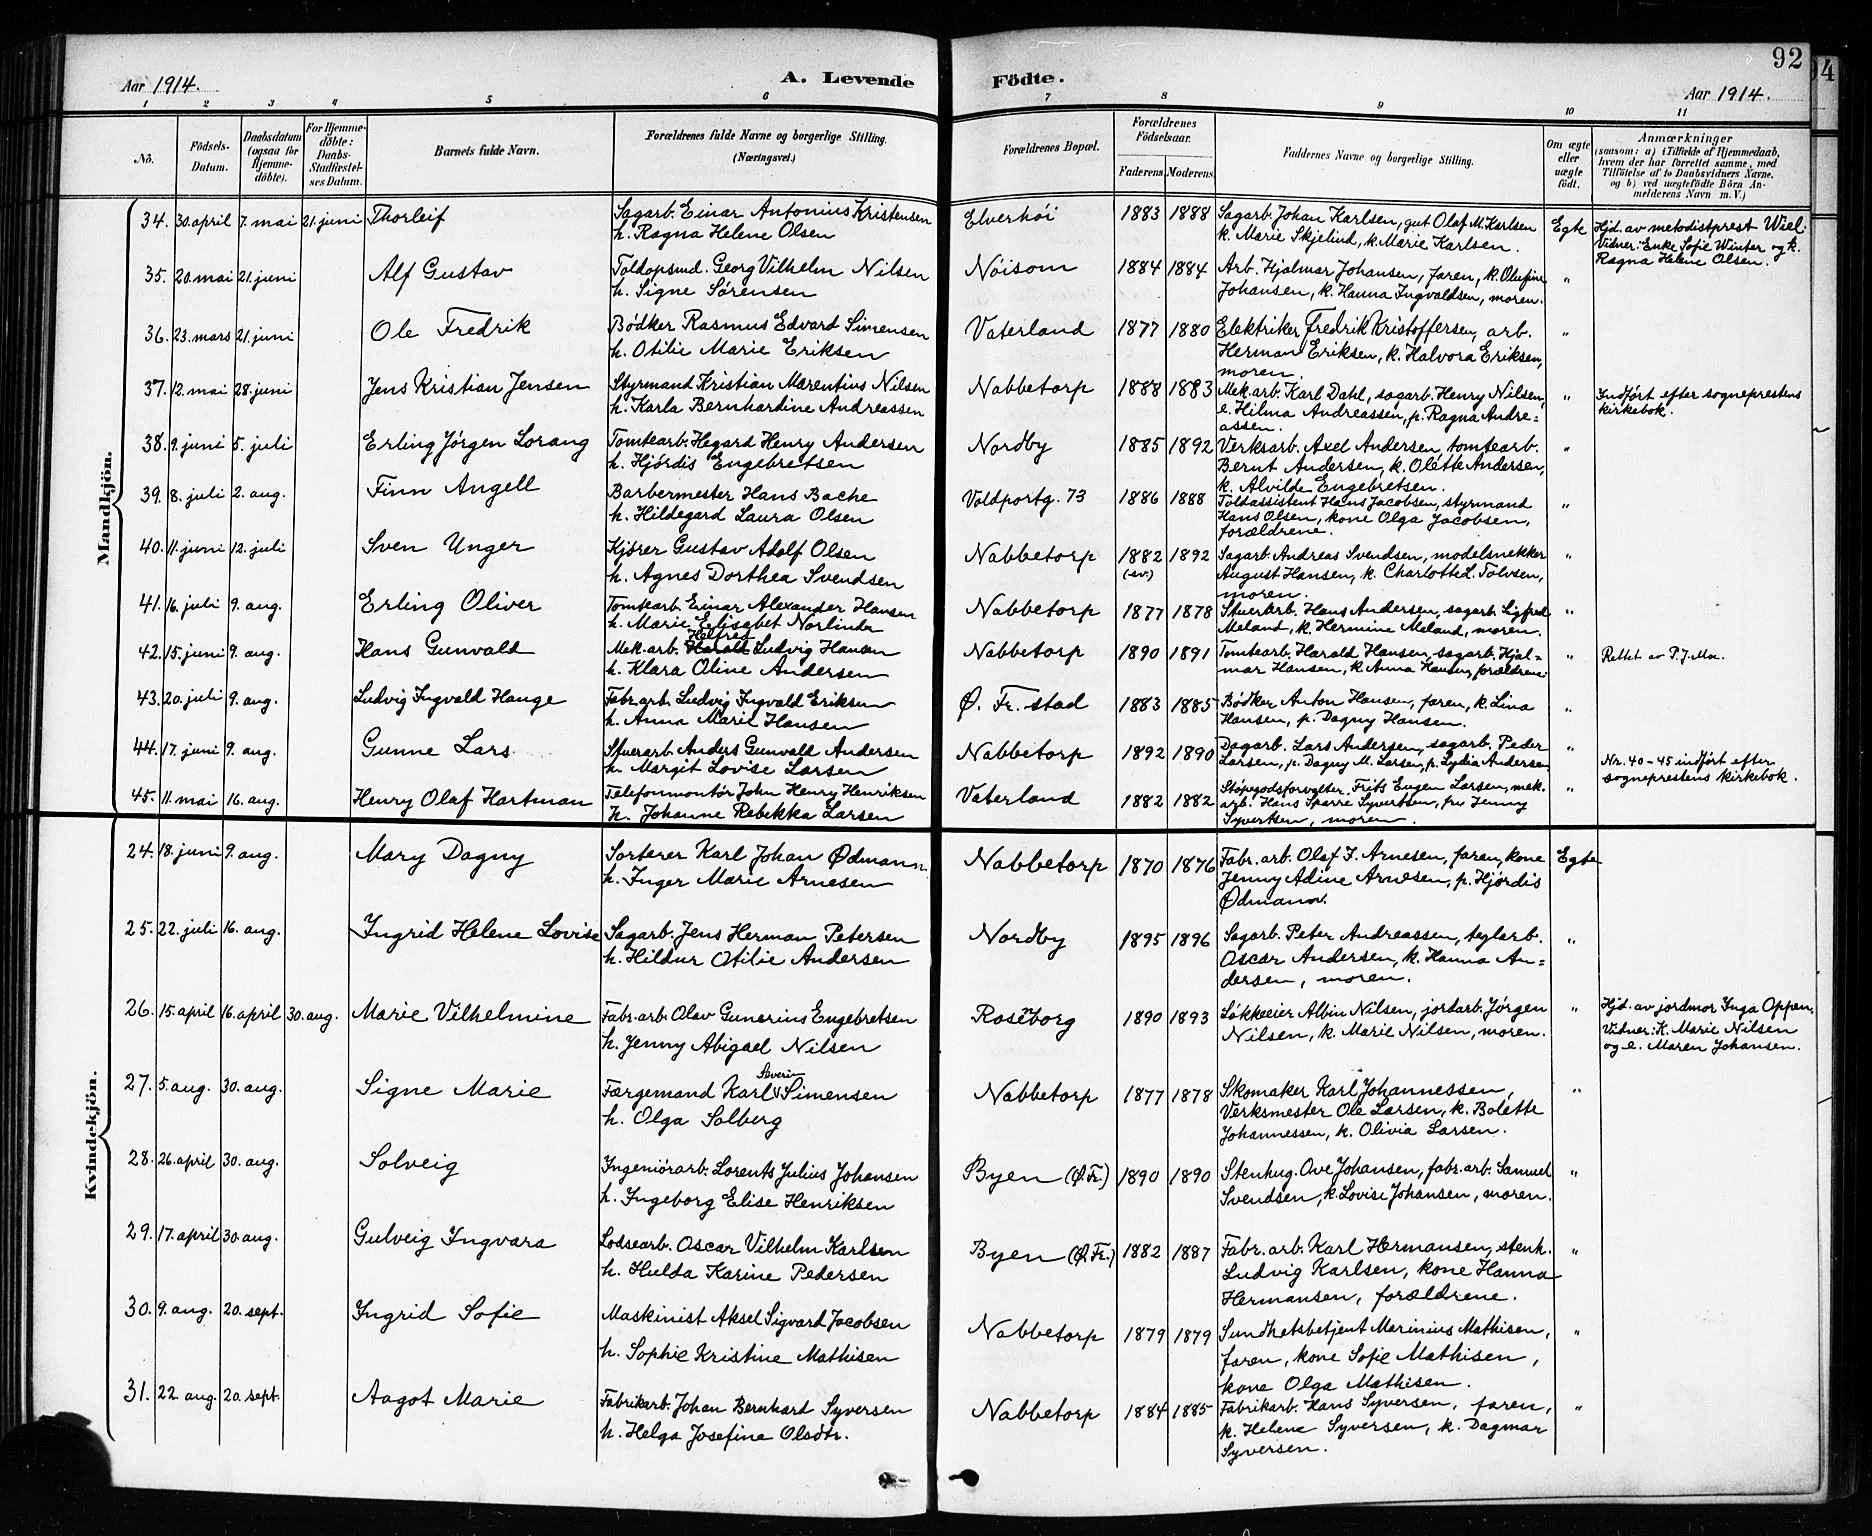 92
94
Aar 1914.
A. Levende Födte.
Aar 1914.
1 2 3 4 5 6 7 8 9 10 11
No.
Födsels-Datum.
Daabsdatum (ogsaa for Hjemme-döbte).
For Hjemme-döbte: Daabs-Stadfæstel-ses Datum.
Barnets fulde Navn.
Forældrenes fulde Navne og borgerlige Stilling.
(Næringsvei.)
Forældrenes Bopæl.
Forældrenes Födselsaar.
Faderens. Moderens.
Faddernes Navne og borgerlige Stilling.
Om ægte eller uægte födt.
Anmærkninger
(saasom: a) i Tilfælde af Hjemmedaab, hvem der har forrettet samme, med Tilföielse af to Daabsvidners Navne, og b) ved uægtefödte Börn An-melderens Navn m. V.)
Mandkjön.
34. 30. april 7. mai 21. juni Thorleif Sagarb. Einar Antonius Kristensen Elverhöi 1883 1888 Sagarb. Johan Karlsen, gut Olaf M. Karlsen Egte Hjd. av metodistprest Wiel.
h. Ragna Helene Olsen k. Marie Skjelind, k. Marie Karlsen. Vidner: Enke Sofie Winter og k.
Ragna Helene Olsen.
35. 20. mai 21. juni Alf Gustav Toldopsmd. Georg Vilhelm Nilsen Nöisom 1884 1884 Arb. Hjalmar Johansen, faren, k. Olufine "
h. Signe Sørensen Johansen, k. Hanna Ingvaldsen, moren.
36. 23. mars 21. juni Ole Fredrik Bødker Rasmus Edvard Simensen Vaterland 1877 1880 Elektriker Fredrik Kristoffersen, arb. "
h. Otilie Marie Eriksen Herman Eriksen, k. Halvora Eriksen,
moren.
37. 12. mai 28. juni Jens Kristian Jensen Styrmand Kristian Marentius Nilsen Nabbetorp 1888 1883 Mek. arb. Karl Dahl, sagarb. Henry Nilsen, " Indført efter sogneprestens
h. Karla Bernhardine Andreassen e. Hilma Andreassen, p. Ragna Andre= kirkebok.
assen.
38. 9. juni 5. juli Erling Jørgen Lorang Tomtearb. Hegard Henry Andersen Nordby 1885 1892 Verksarb. Axel Andersen, tomtearb. "
h. Hjördis Engebretsen Bernt Andersen, k. Olette Andersen,
k. Alvilde Engebretsen.
39. 8. juli 2. aug. Finn Angell Barbermester Hans Bache Voldportg. 73 1886 1888 Toldassistent Hans Jacobsen, styrmand "
h. Hildegard Laura Olsen Hans Olsen, kone Olga Jacobsen,
forældrene.
40. 11. juni 12. juli Sven Unger Kjører Gustav Adolf Olsen Nabbetorp 1882 1892 Sagarb. Andreas Svendsen, modelsnekker "
h. Agnes Dorthea Svendsen (sv.) August Hansen, k. Charlotte L. Tolvsen,
moren.
41. 16. juli 9. aug. Erling Oliver Tomtearb. Einar Alexander Hansen Nabbetorp 1877 1878 Stuerarb. Hans Andersen, sagarb. Sigfred "
h. Marie Elisabet Norlinder Meland, k. Hermine Meland, moren.
Helfred
42. 15. juni 9. aug. Hans Gunvald Mek. arb. Harald Ludvig Hansen Nabbetorp 1890 1891 Tomtearb. Harald Hansen, sagarb. Hjal= " Rettet av P. J. Moe.
h. Klara Oline Andersen mar Hansen, k. Anna Hansen, forældrene.
43. 20. juli 9. aug. Ludvig Ingvald Hauge Fabr. arb. Ludvig Ingvald Eriksen Ø. Fr. stad 1883 1885 Bødker Anton Hansen, faren, k. Lina "
h. Anna Marie Hansen Hansen, p. Dagny Hansen.
44. 17. juni 9. aug. Gunne Lars Stuerarb. Anders Gunvald Andersen Nabbetorp 1892 1890 Dagarb. Lars Andersen, sagarb. Peder "
h. Margit Lovise Larsen Larsen, p. Dagny M. Larsen, p. Lydia Andersen Nr. 40-45 indført efter
sogneprestens kirkebok.
45. 11. mai 16. aug. Henry Olaf Hartman Telefonmontør John Henry Henriksen Vaterland 1882 1882 Støpgodsforvalter Frits Eugen Larsen, mek. "
h. Johanne Rebekka Larsen arb. Hans Sparre Syvertsen, fru Jenny
Syvertsen, moren.
Kvindekjön.
24. 18. juni 9. aug. Mary Dagny Sorterer Karl Johan Ødmann Nabbetorp 1870 1876 Fabr. arb. Olaf J. Arnesen, faren, kone Egte
h. Inger Marie Arnesen Jenny Adine Arnesen, p. Hjördis
Ødmann.
25. 22. juli 16. aug. Ingrid Helene Lovise Sagarb. Jens Herman Petersen Nordby 1895 1896 Sagarb. Peter Andreassen, teglarb. "
h. Hildur Otilie Andersen Oscar Andersen, k. Hanna An=
dersen, moren.
26. 15. april 16. april 30. aug. Marie Vilhelmine Fabr. arb. Olav Gunerius Engebretsen Rosenborg 1890 1893 Løkkeeier Albin Nilsen, jordarb. Jørgen " Hjd. av jordmor Inga Oppen.
h. Jenny Abigael Nilsen Nilsen, k. Marie Nilsen, moren. Vidner: K. Marie Nilsen
og e. Maren Johansen.
Severin
27. 5. aug. 30. aug. Signe Marie Færgemand Karl Simensen Nabbetorp 1877 1878 Skomaker Karl Johannessen, "
h. Olga Solberg Verksmester Ole Larsen, k. Bolette
Johannessen, k. Olivia Larsen.
28. 26. april 30. aug. Solveig Ingeniörarb. Lorents Julius Johansen Byen (Ø. Fr.) 1890 1890 Stenhug. Ove Johansen, fabr. arb. Samuel "
h. Ingeborg Elise Henriksen Svendsen, k. Lovise Johansen, moren.
29. 17. april 30. aug. Gulveig Ingvara Lodsearb. Oscar Vilhelm Karlsen Byen (Ø. Fr.) 1882 1887 Fabr. arb. Karl Hermansen, stenh. "
h. Hulda Karine Pedersen Ludvig Karlsen, kone Hanna
Hermansen, forældrene.
30. 9. aug. 20. sept. Ingrid Sofie Maskinist Aksel Sigvard Jacobsen Nabbetorp 1879 1879 Sundhetsbetjent Marinius Mathisen, "
h. Sophie Kristine Mathisen faren, kone Sofie Mathisen,
kone Olga Mathisen.
31. 22. aug. 20. sept. Aagot Marie Fabrikarb. Johan Bernhard Syversen Nabbetorp 1884 1885 Fabrikarb. Hans Syversen, faren, "
h. Helga Josefine Olsdtr. k. Helene Syversen, k. Dagmar
Syversen.